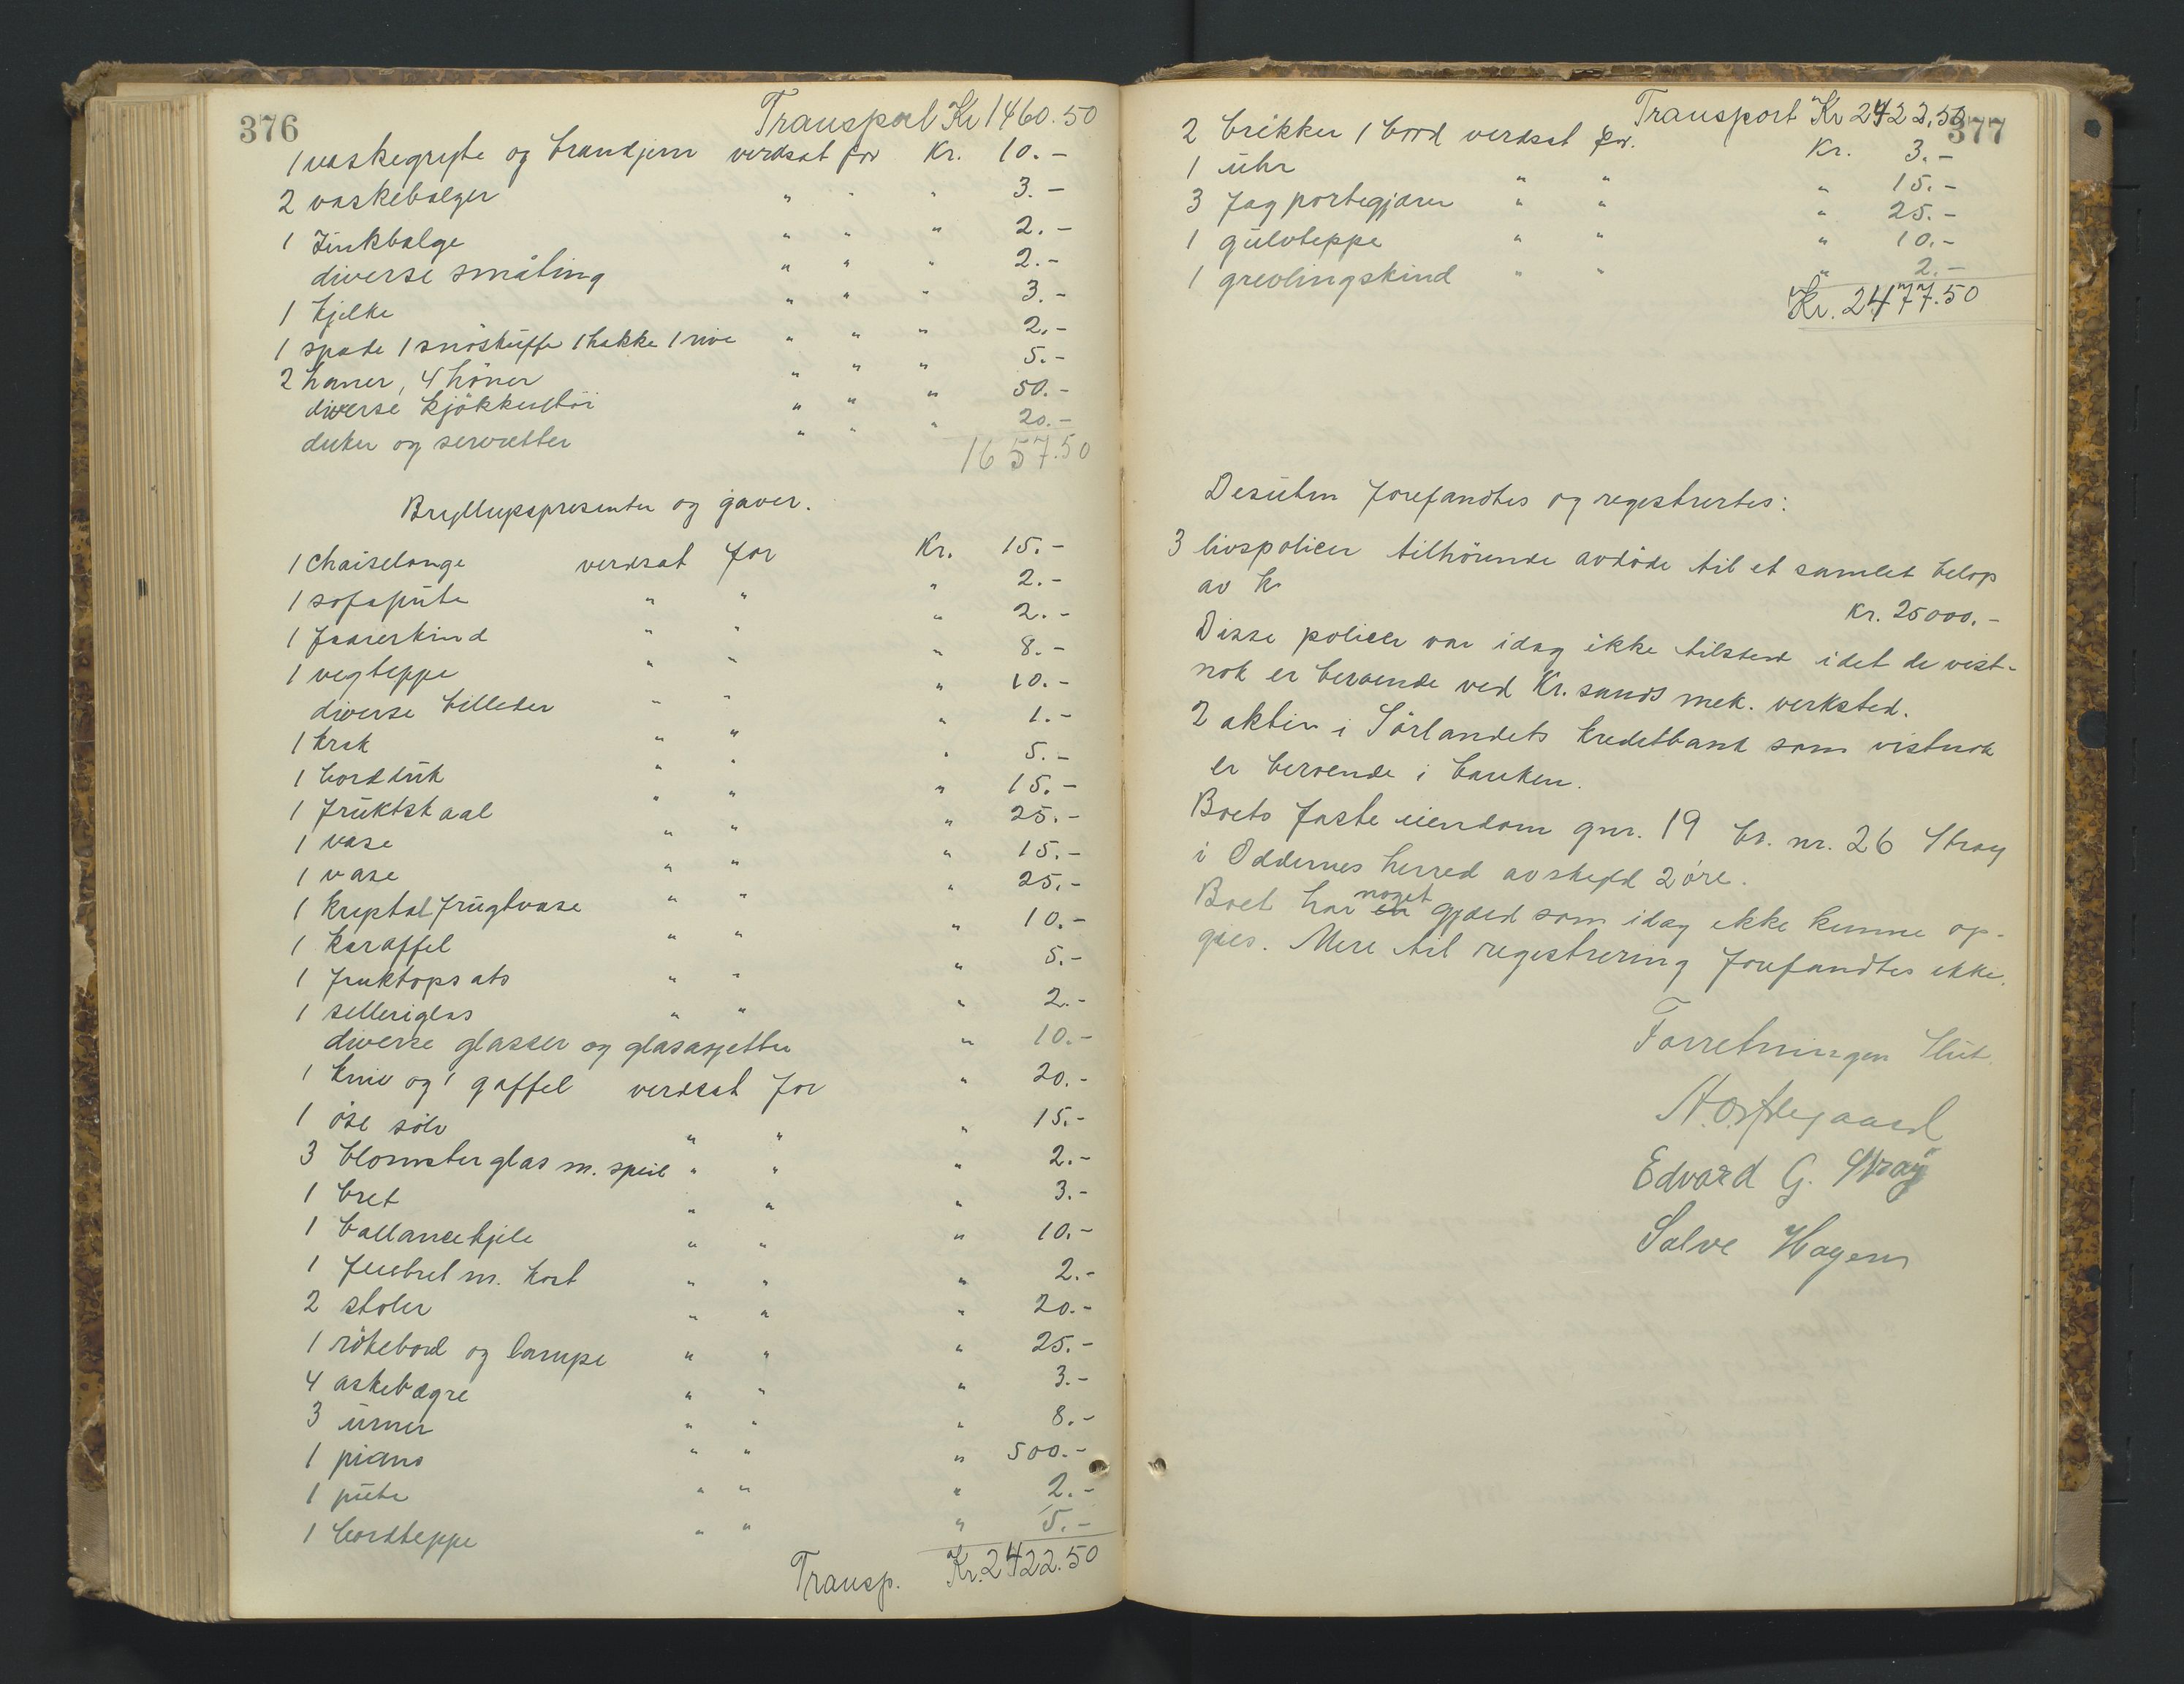 376
Transport Kr 1460.50
1 vaskegryte og brandjern verdsat for Kr. 10.-
2 vaskebalger " " " 3.-
1 Zinkbalge " " " 2.-
diverse småting " " " 2.-
1 kjelke " " " 3.-
1 spade 1 snöskuffe 1 hakke 1 rive " " " 2.-
2 haner, 4 höner " " " 5.-
diverse kjökkentöi " " " 50.-
duker og servietter " " " 20.-
1657.50
Bryllupspresenter og gaver.
1 chaiselonge verdsat for Kr. 15.-
1 sofapute " " " 2.-
1 faareskind " " " 2.-
1 vegteppe " " " 8.-
diverse billeder " " " 10.-
1 krak " " " 1.-
1 bordduk " " " 5.-
1 fruktskaal " " " 15.-
1 vase " " " 25.-
1 vase " " " 15.-
1 krystal frugtvase " " " 25.-
1 karaffel " " " 10.-
1 fruktopsats " " " 5.-
1 selleriglas " " " 2.-
diverse glasser og glasasjetter " 10.-
1 kniv og 1 gaffel verdsat for " 20.-
1 öse sölv " " " 15.-
3 blomsterglas m. speil " " " 2.-
1 bret " " " 3.-
1 ballansekjele " " " 10.-
1 feiebret m. kost " " " 2.-
2 stoler " " " 20.-
1 rökebord og lampe " " " 25.-
4 askebægre " " " 3.-
3 urner " " " 8.-
1 piano " " " 500.-
1 pute " " " 2.-
1 bordteppe " " " 5.-
Transp. Kr. 2422.50
377
Transport Kr 2422,50
2 brikker 1 bord verdsat for. Kr. 3.-
1 uhr " " " 15.-
3 fag portegjærer " " " 25.-
1 gulvteppe " " " 10.-
1 grevlingskind " " " 2.-
Kr. 2477.50
Desuten forefandtes og registrertes:
3 livspolicer tilhörende avdöde til et samlet belöp
av Kr Kr. 25000.-
Disse policer var idag ikke tilstede idet de vist-
nok er beroende ved Kr.sands mek. verksted.
2 aktier i Sörlandets Kreditbank som vistnok
er beroende i banken.
Boets faste eiendom gnr. 19 br. nr. 26 Stray
i Oddernes herred av skyld 2 öre.
Boet har en noget gjæld som idag ikke kunne op-
gies. Mere til registrering forefandtes ikke.
Forretningen Slut.
Edvard G. Stray
Salve Hagen